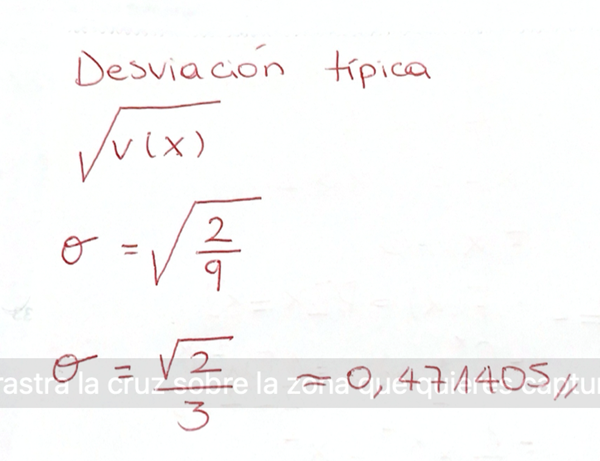 Desviación típica
√V(x)
σ = √2/9
σ = √2/3 ≈ 0,471405,,
rastra la cruz sobre la zona que quieres captur